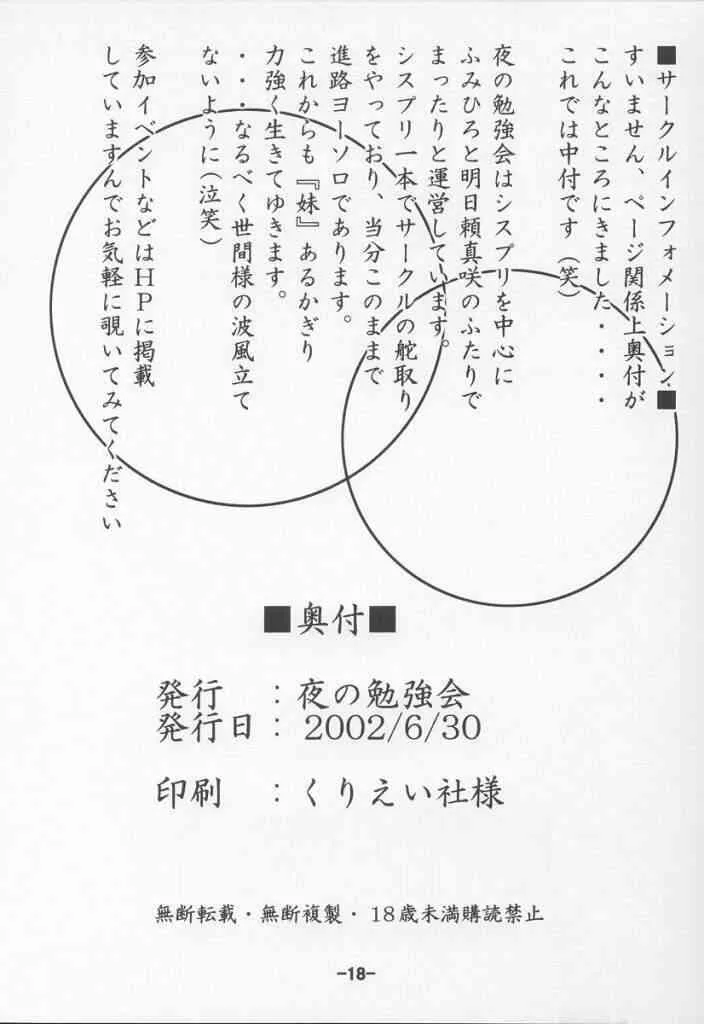 ■サークルインフォメーション■
すいません、ページ関係上奥付が
こんなところにきました・・・・
これでは中付です（笑）
夜の勉強会はシスプリを中心に
ふみひろと明日頼真咲のふたりで
まったりと運営しています。
シスプリ一本でサークルの舵取り
をやっており、当分このままで
進路ヨーソロであります。
これからも『妹』あるかぎり
力強く生きてゆきます。
・・・なるべく世間様の波風立て
ないように（泣笑）
参加イベントなどはＨＰに掲載
していますんでお気軽に覗いてみてください
■奥付■
発行　：夜の勉強会
発行日：2002/6/30
印刷　：くりえい社様
無断転載・無断複製・18歳未満購読禁止
-18-